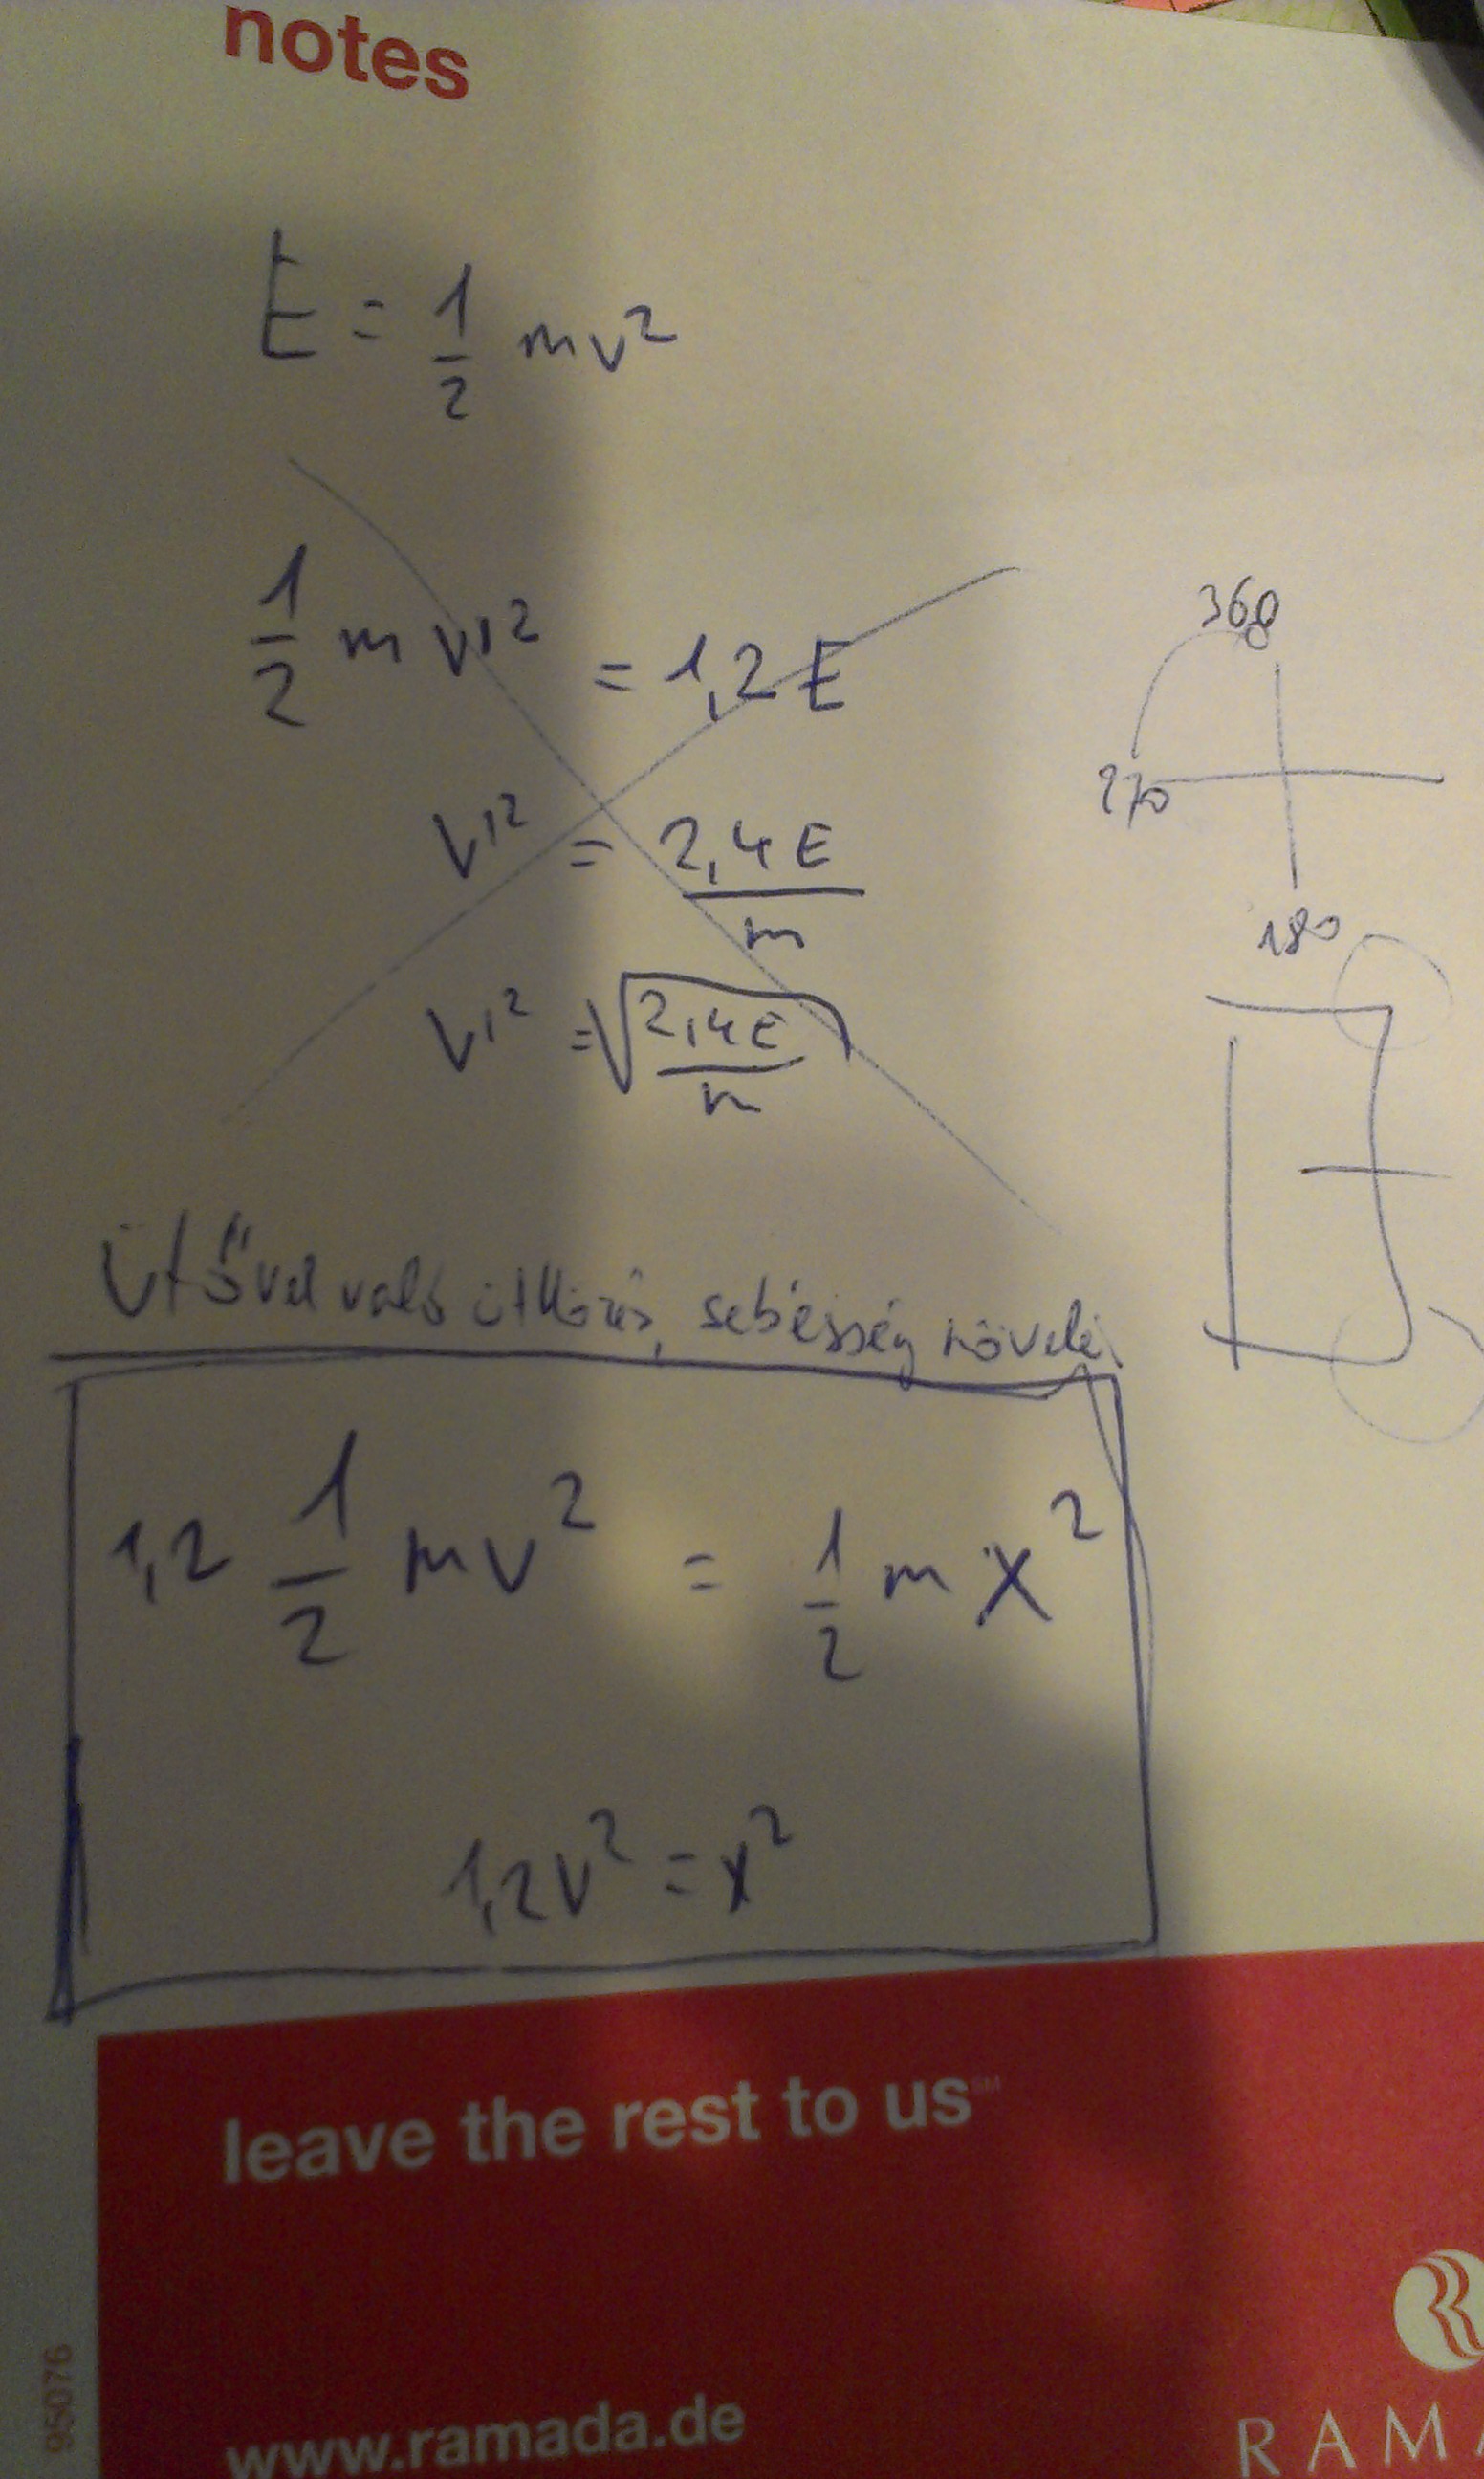 notes
E = 1/2 mv²
1/2 m v1² = 1,2 E
v1² = 2,4 E / m
v1² = √(2,4 E / m)
360
270
180
Ütővel való ütközés, sebesség növelé
1,2 1/2 mv² = 1/2 m x²
1,2 v² = x²
leave the rest to us℠
www.ramada.de
RAMA
95076